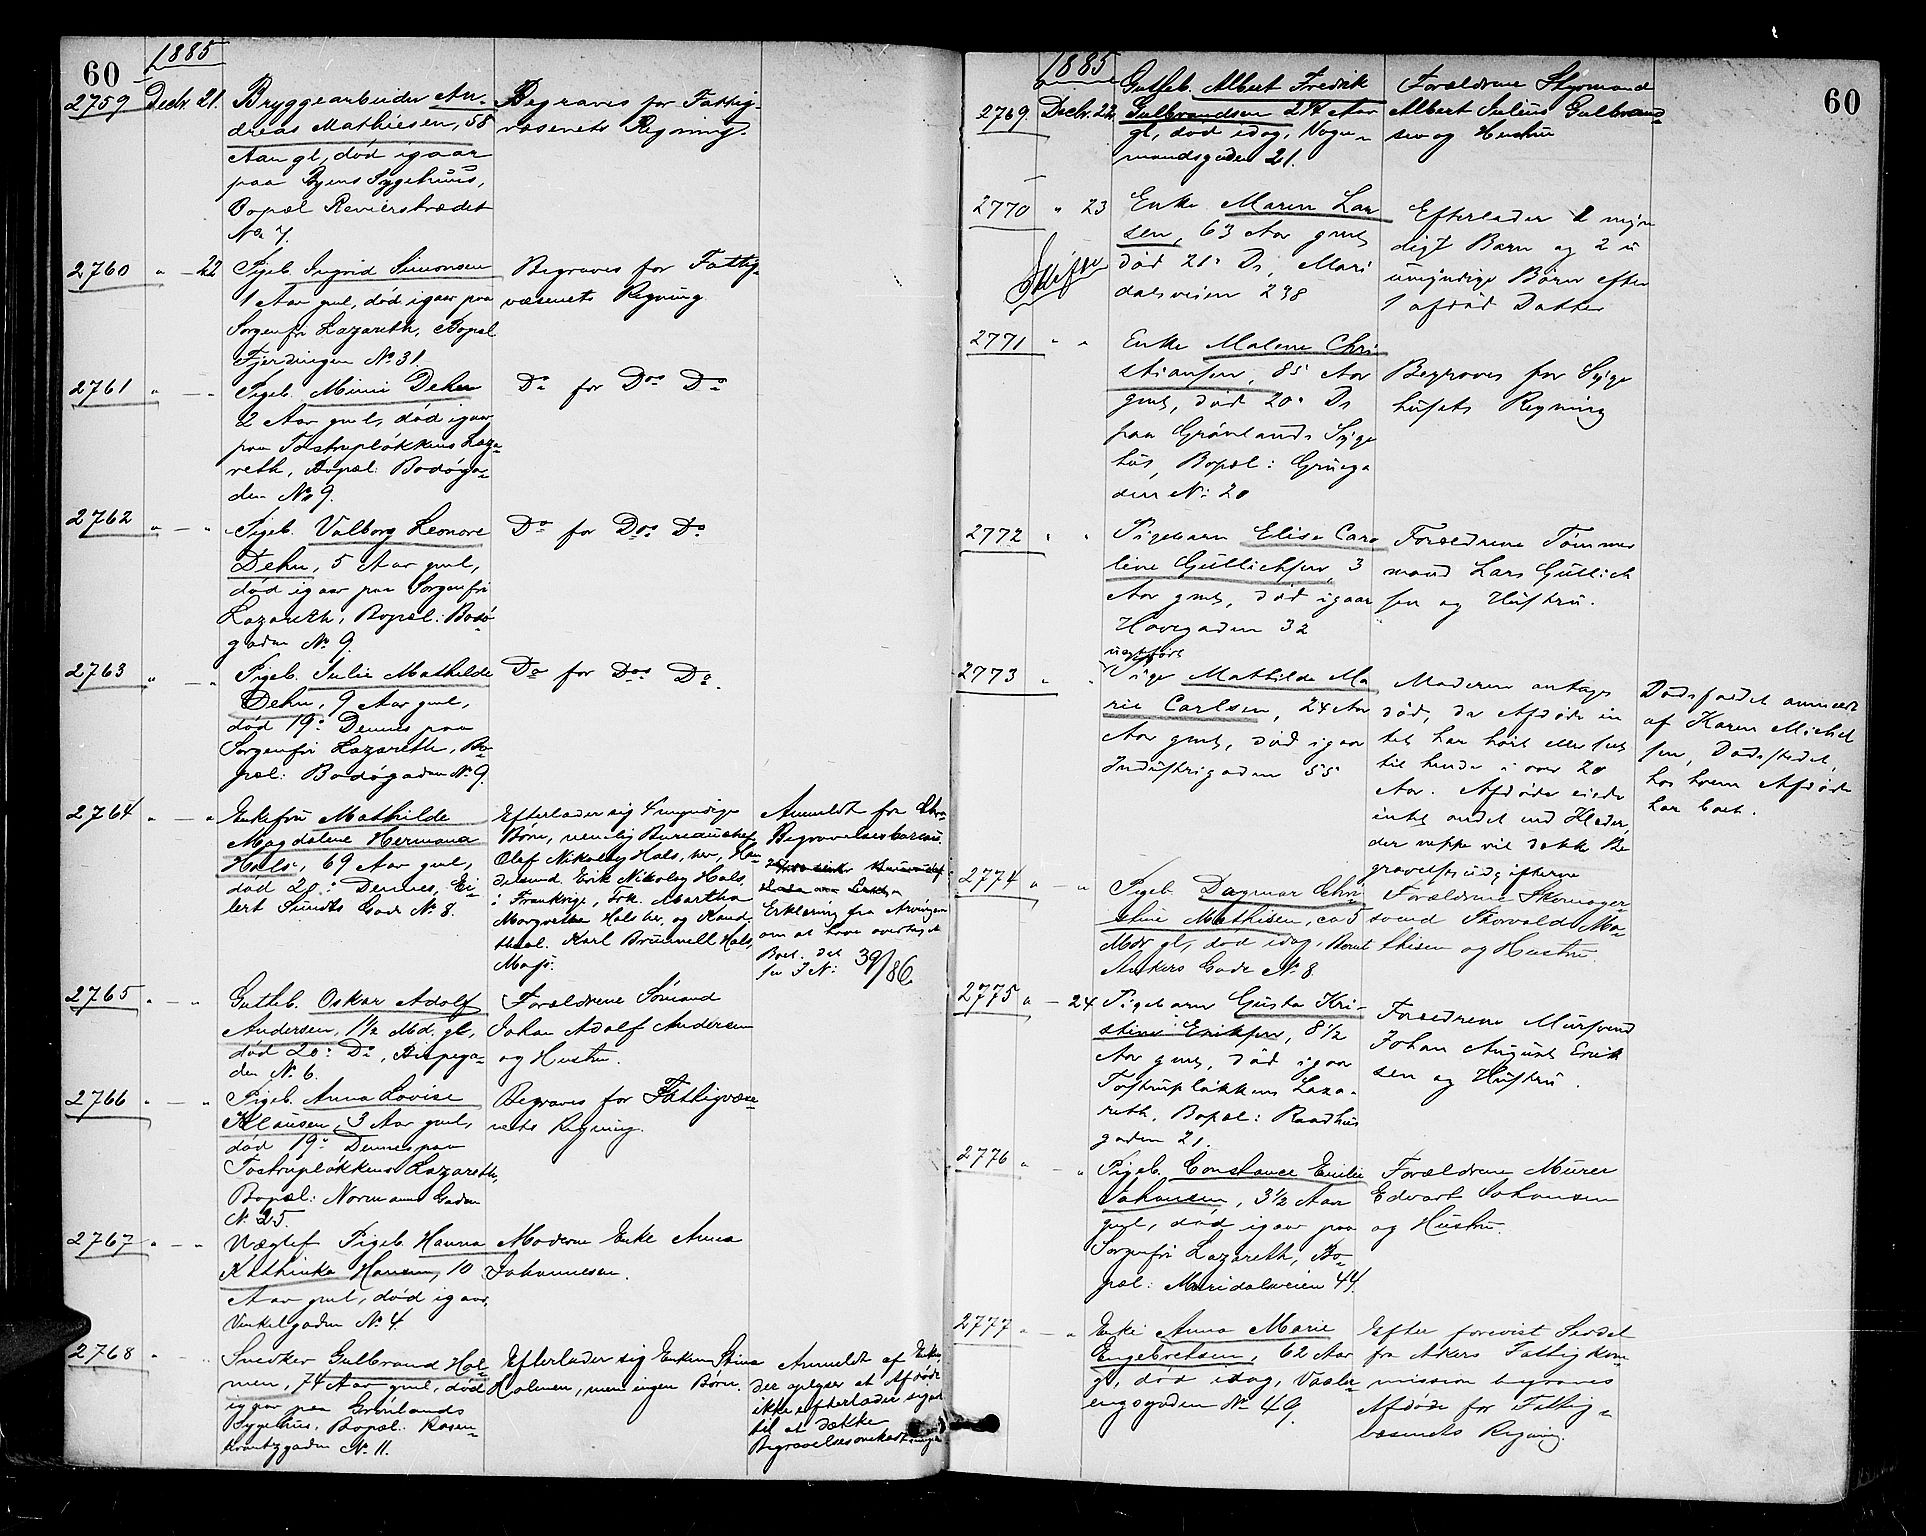 60
1885
2759 Decbr. 21. Bryggearbeider An-
dreas Mathiesen, 58
Aar gl, død igaar
paa Byens Sygehuus,
Bopæl Revierstrædet
No 7.
Begraves for Fattig-
væsenets Regning.
2760 " — 22 Pigeb. Ingrid Simonsen
1 Aar gml, død igaar paa
Sorgenfri Lazareth, Bopæl
Fjerdingen No 31.
Begraves for Fattig-
væsenets Regning
2761 " — " Pigeb. Mimi Dehn
2 Aar gml, død igaar
paa Tostrupløkkens Laza-
reth, Bopæl: Bodøga-
den No 9.
Do for Dos Do
2762 " — " Pigeb. Valborg Leonore
Dehn, 5 Aar gml,
død igaar paa Sorgenfri
Lazareth, Bopæl: Bodø-
gaden No 9.
Do for Dos Do
2763 " — " Pigeb. Julie Mathilde
Dehn, 9 Aar gml,
død 19: Dennes paa
Sorgenfri Lazareth, Bo-
pæl: Bodøgaden No 9.
Do for Dos Do.
2764 " — " Enkefru Mathilde
Magdalene Hermana
Hals, 69 Aar gml,
død 20: Dennes, Ei-
lert Sundts Gade No 8.
Efterlader sig 4 myndige
Børn, nemlig Bureauchef
Olaf Nikolay Hals, her, Han
delsmd. Erik Nikolay Hals,
i Frankrige, Frk. Martha
Margrethe Hals her, og Kand
theol. Karl Brunnell Hals,
Moss.
Anmeldt fra Chra
Begravelsesbureau.
Erklæring fra Arvingerne
om at have overtaget
Boet. det
se J No: 39/86
2765 " — " Gutteb. Oskar Adolf
Andersen, 1½ Md. gl,
død 20: Ds, Bispega-
den No 6.
Forældrene Sømand
Johan Adolf Andersen
og Hustru.
2766 " — " Pigeb. Anna Lovise
Klausen, 3 Aar gml,
død 19: Dennes paa
Tostrupløkkens Lazareth,
Bopæl: Normanns Gaden
No 25.
Begraves for Fattigvæse-
nets Regning.
2767 " — " Uægtef. Pigeb. Hanna
Kathinka Hansen, 10
Aar gml, død igaar,
Vinkelgaden No 4.
Moderen Enke Anna
Johannesen.
2768 " " Snedker Gulbrand Hol-
men, 74 Aar gml, død
igaar paa Grønlands
Sygehus, Bopæl: Rosen-
krantzgaden No 11.
Efterlader sig Enken Stine
Holmen, men ingen Børn.
Anmeldt af Enken,
der oplyser at Afdøde
ikke efterlader sig
til at dække
Begravelsesomkostninger
1885
60
2769 Decbr. 22. Gutteb. Albert Fredrik
Gulbrandsen 2¼ Aar
gl, død idag, Vogn-
mandsgaden 21.
Forældrene Styrmand
Albert Julius Gulbrand-
sen og Hustru
2770 " 23 Enke Maren Lar
sen, 63 Aar gml
død 21: Ds, Mari
dalsveien 238
Skifte
Efterlader 1 myn
digt Barn og 2 u
umyndige Børn efter
1 afdød Datter
2771 " " Enke Malene Chri
stiansen, 85 Aar
gml, død 20: Ds
paa Grønlands Syge
hus, Bopæl: Grünerga
den No: 20
Begraves for Syge
husets Regning
2772 " " Pigebarn Elise Caro
line Gullichsen, 3
Aar gml, død igaar
Havegaden 32
Forældrene Tømmer
mand Lars Gullich
sen og Hustru.
2773 " " uægtefødt
Pige Mathilde Ma
rie Carlsen, 24 Aar
Aar gml, død igaar
Industrigaden 55
Moderen antages
død, da Afdøde in
tet har hørt eller set
til hende i over 20
Aar. Afdøde eiede
intet andet end Klæder,
der neppe vil dække Be
gravelsesudgifterne
Dødsfaldet anmeldt
af Karen Michel
sen, Dødsstedet,
hos hvem Afdøde
har boet.
2774 " — " Pigeb. Dagmar Chri-
stine Mathisen, ca 5
Mdr gl, død idag, Bernt
Ankers Gade No 8
Forældrene Skomager-
svend Thorvald Ma-
thisen og Hustru.
2775 " — 24 Pigebarn Gusta Kri-
stine Eriksen, 8½
Aar gml, død igaar
Tostrupløkkens Laza-
reth, Bopæl: Raadhus
gaden 21.
Forældrene Mursvend
Johan August Erik
sen og Hustru.
2776 " — " Pigeb. Constance Emilie
Johansen, 3½ Aar
gml, død igaar paa
Sorgenfri Lazareth, Bo-
pæl: Maridalsveien 44.
Forældrene Murer
Edvart Johansen
og Hustru.
2777 " — " Enke Anna Marie
Engebretsen, 62 Aar
gl, død idag, Vaaler-
engsgaden No 49.
Efter forevist Seddel
fra Akers Fattigkom-
mission begraves
Afdøde for Fattig-
væsenets Regning.